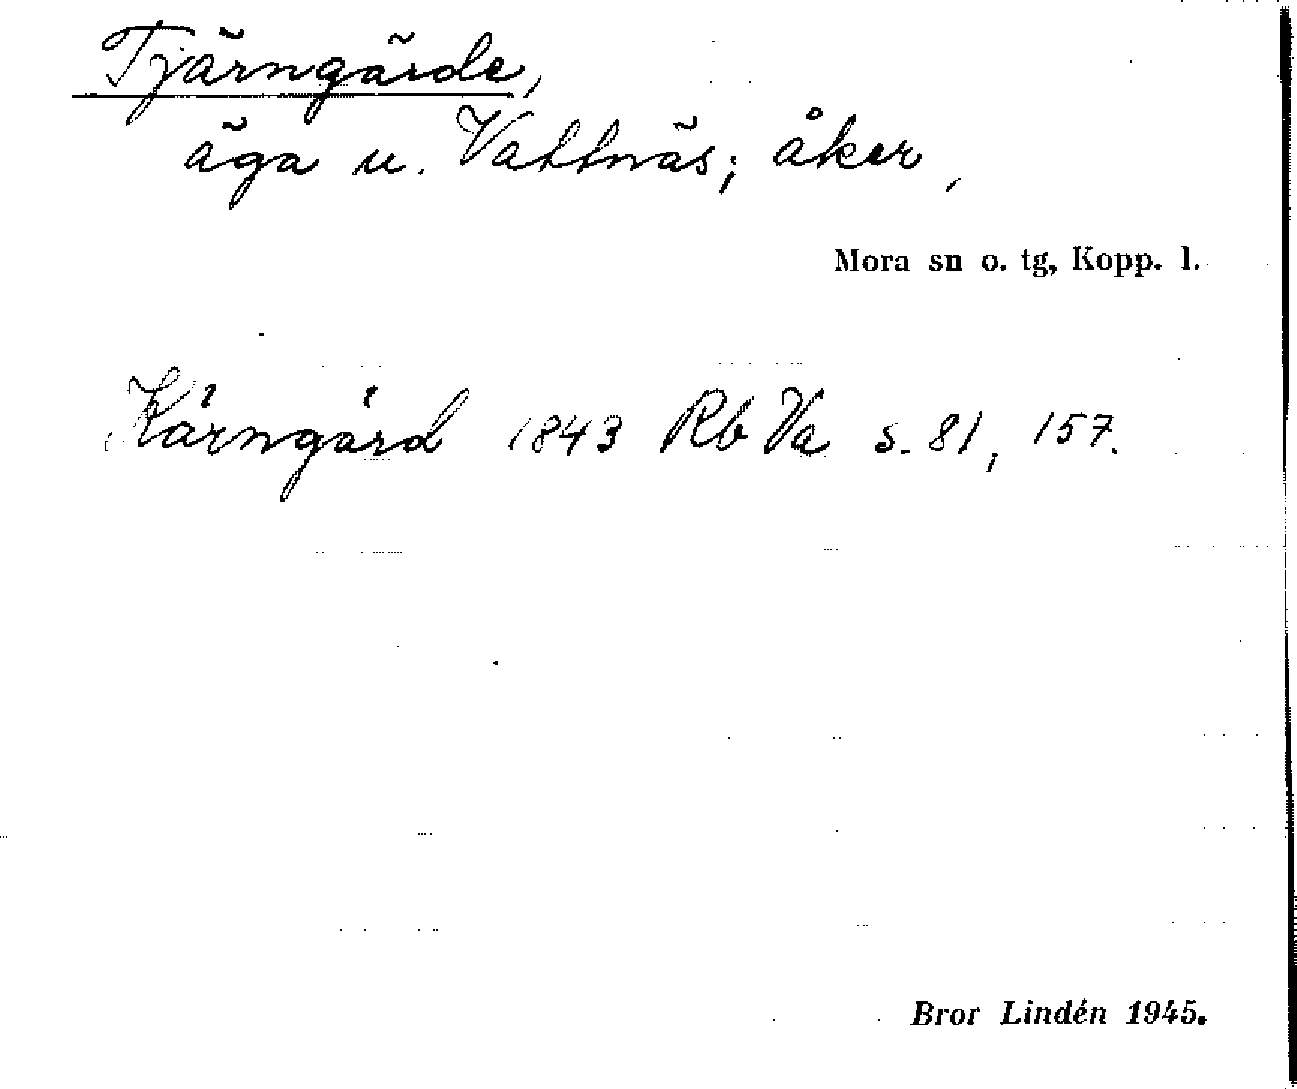 Tjärngärde,
äga u. Vattnäs; åker,
Mora sn o. tg, Kopp. l.
Kärngärd 1843 Rb Va s. 81, 157.
Bror Lindén 1945.